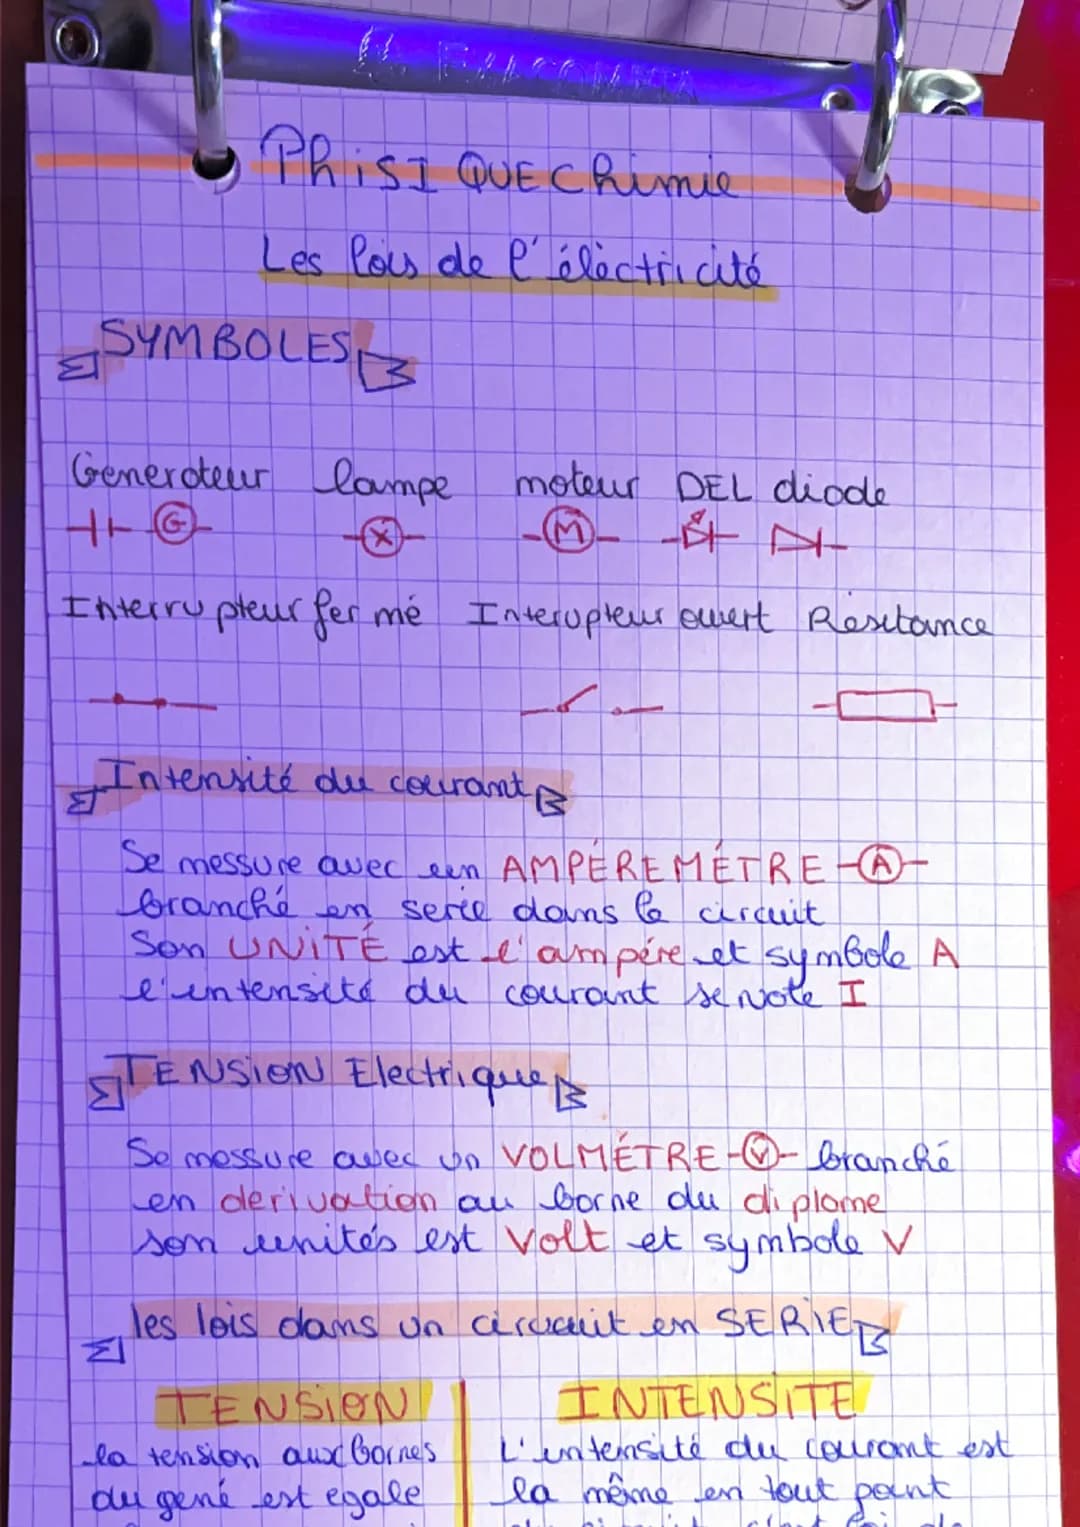 EXACOMPTA
PhiSIQUE Chimie
Les lois de l'éléctricité
SYMBOLES
Generateur lampe moteur DEL diode
G X M
Interrupteur fermé Interupteur ouvert Résitance
Intensité du courant
Se messure avec un AMPÉREMÉTRE A
branché en serie dans le circuit
Son UNiTÉ est l'ampére et symbole A
l'intensité du courant se note I
TENSiON Electrique
Se messure avec un VOLMÉTRE V branché
en derivation au borne du diplome
son unités est Volt et symbole V
les lois dans un circuit en SERiE
TENSiON INTENSiTE
la tension aux bornes L'intensité du courant est
du gené est egale la même en tout point